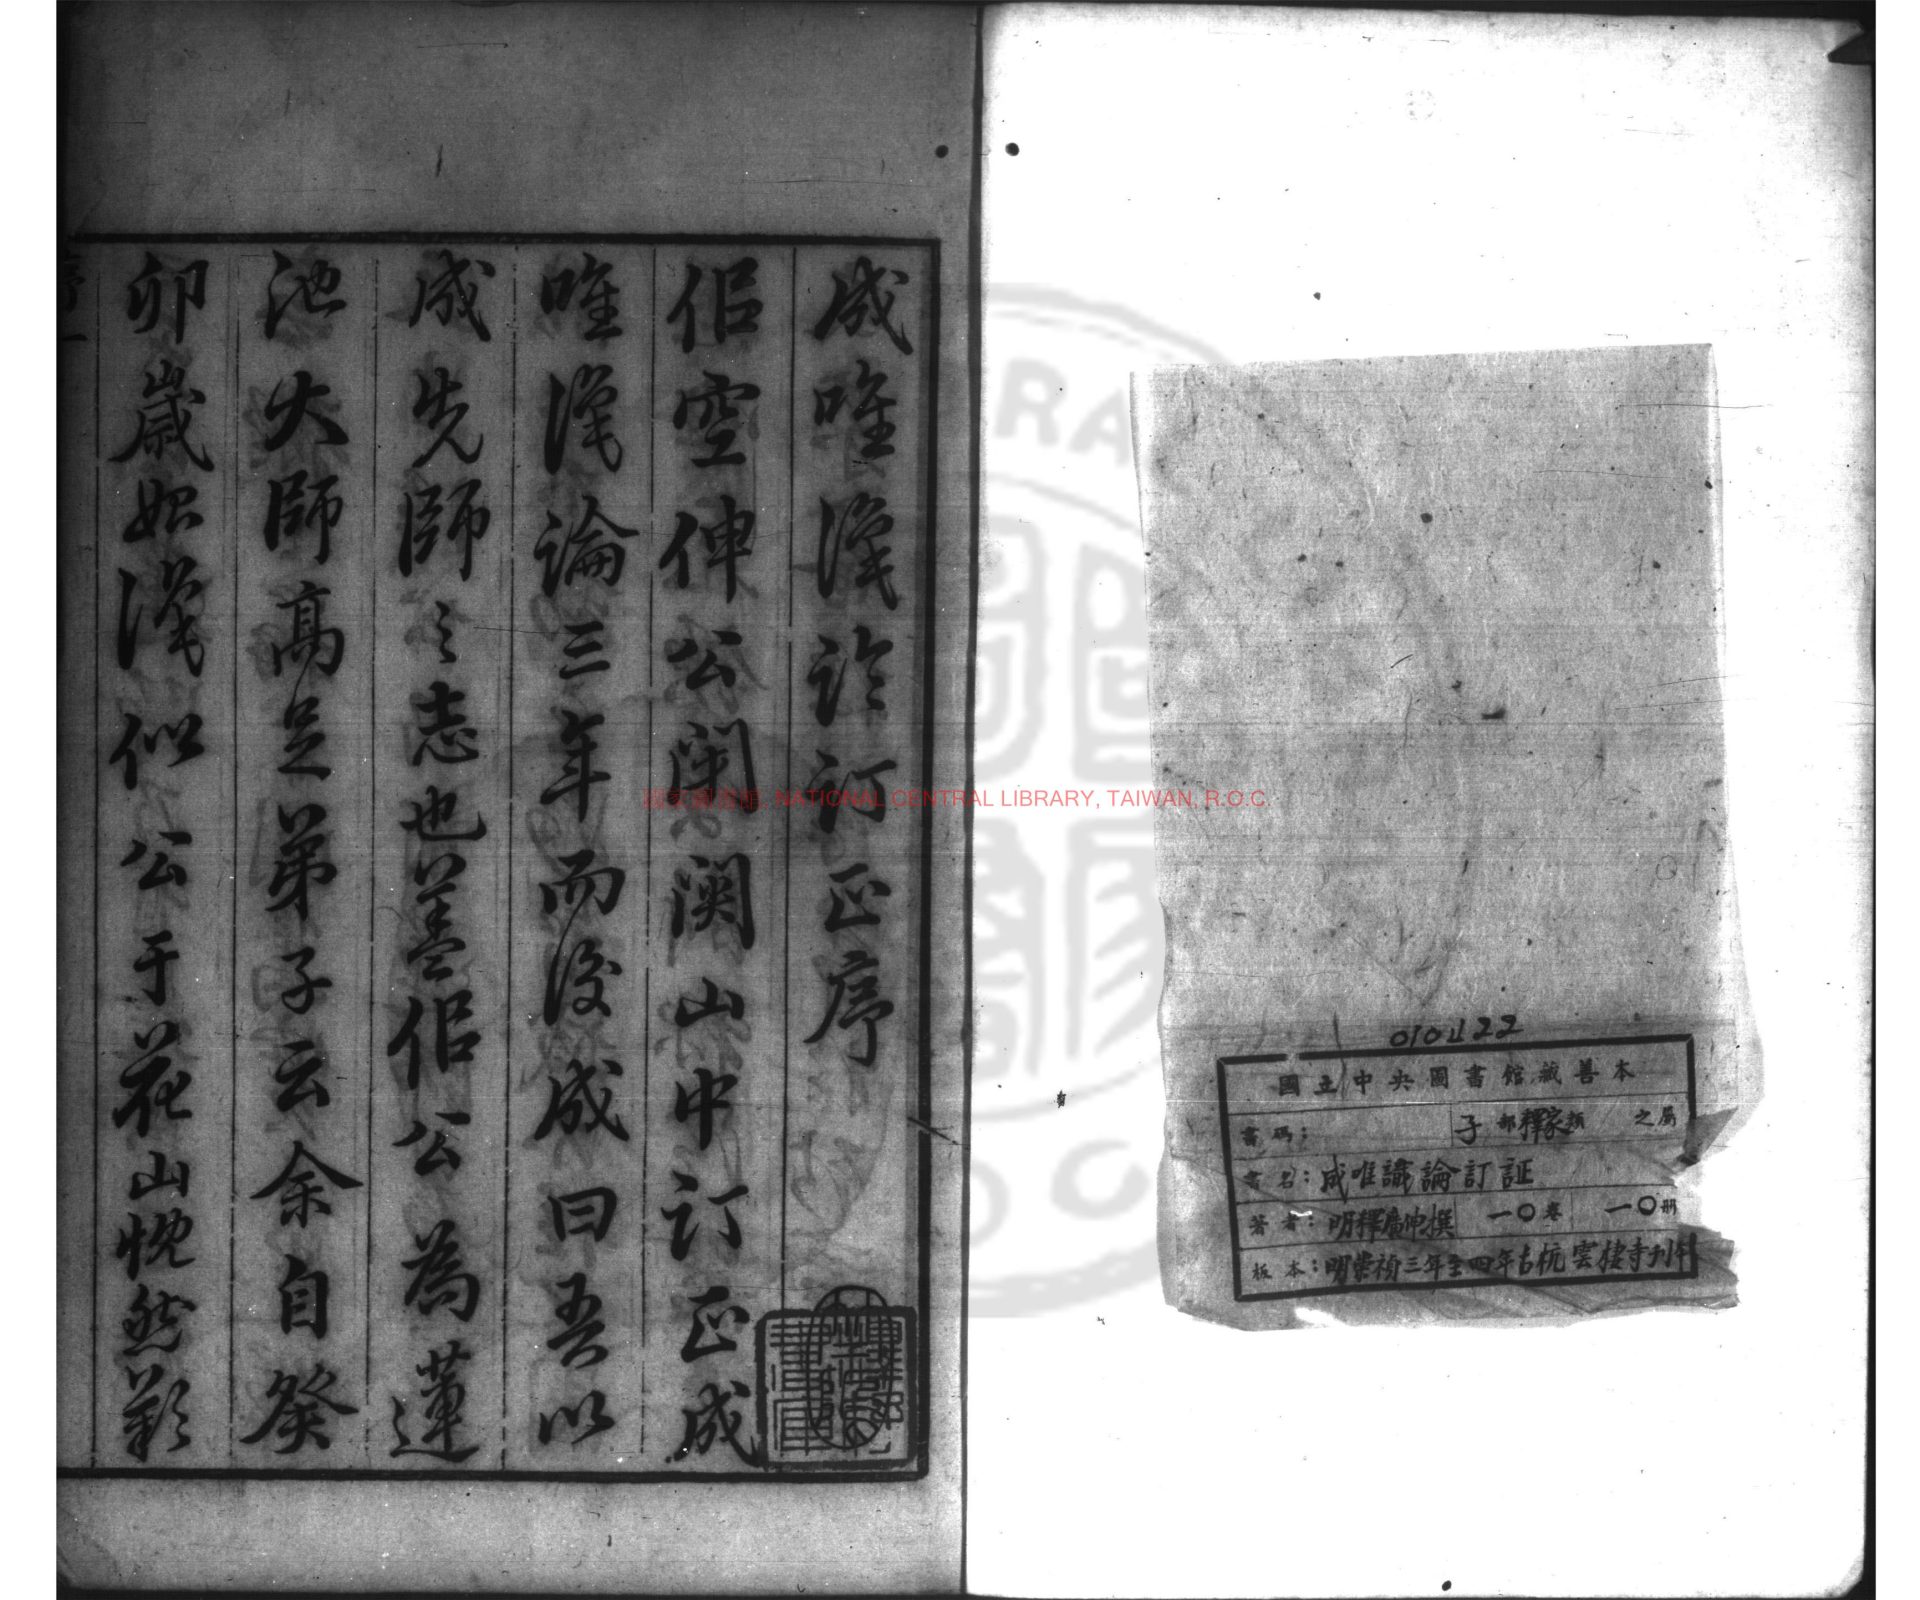 國立中央圖書館藏善本
書碼： 子部釋家類 之屬
書名：成唯識論訂証
著者：明釋廣伸撰 一〇卷 一〇冊
板本：明崇禎三年至四年古杭雲棲寺刊本
成唯識論訂正序
佀空伸公閉關山中訂正成
唯識論三年而後成曰吾以
成先師之志也蓋佀公為蓮
池大師高足弟子云余自癸
卯歲始識似公于花山恍然歎
國家圖書館, NATIONAL CENTRAL LIBRARY, TAIWAN, R.O.C.